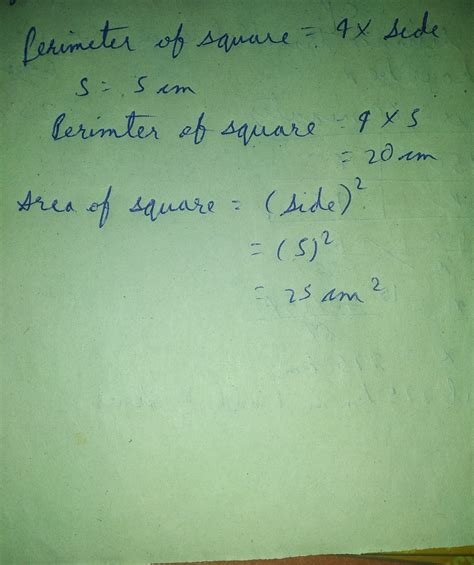 Perimeter of square = 4 × side
S = 5 cm
Perimter of square = 4 × 5
= 20 cm
Area of square = (side)²
= (5)²
= 25 cm²